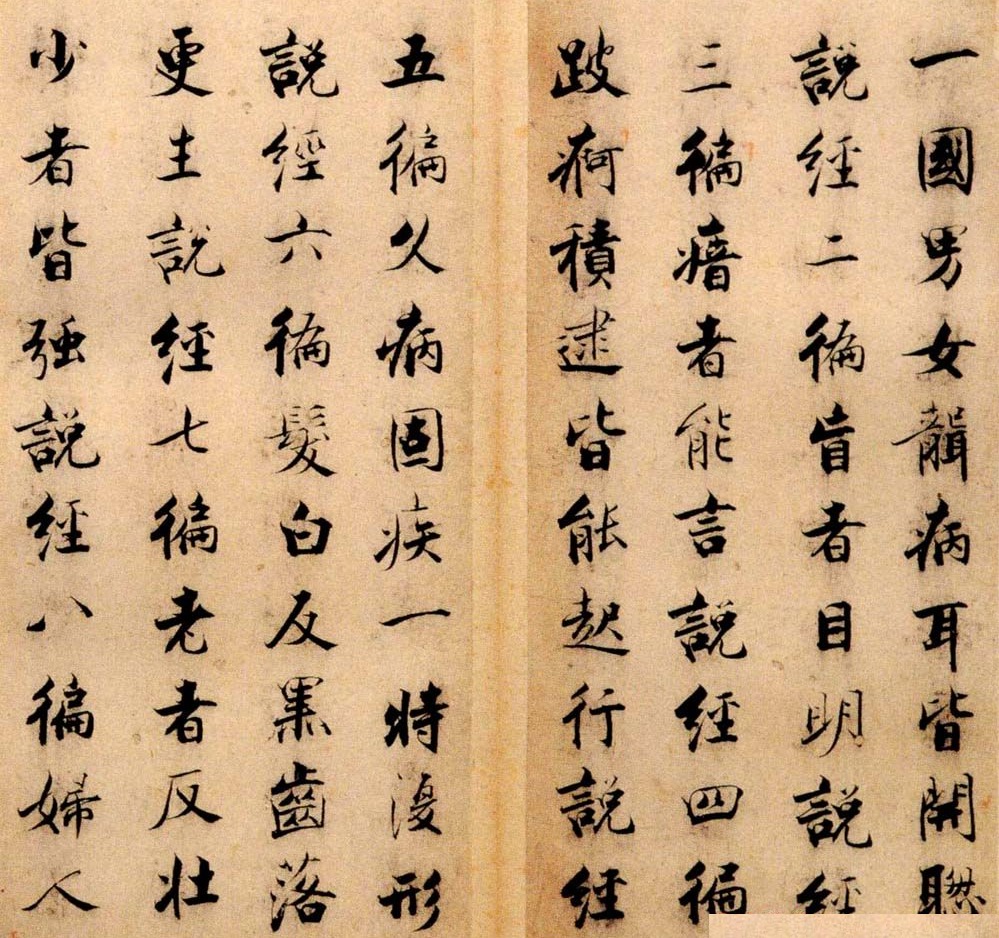 一國男女聾病耳皆開聰
説經二徧盲者目明説經
三徧瘖者能言説經四徧
跛痾積逮皆能起行説經
五徧久病固疾一時復形
説經六徧髮白反黑齒落
更生説經七徧老者反壯
少者皆強説經八徧婦人